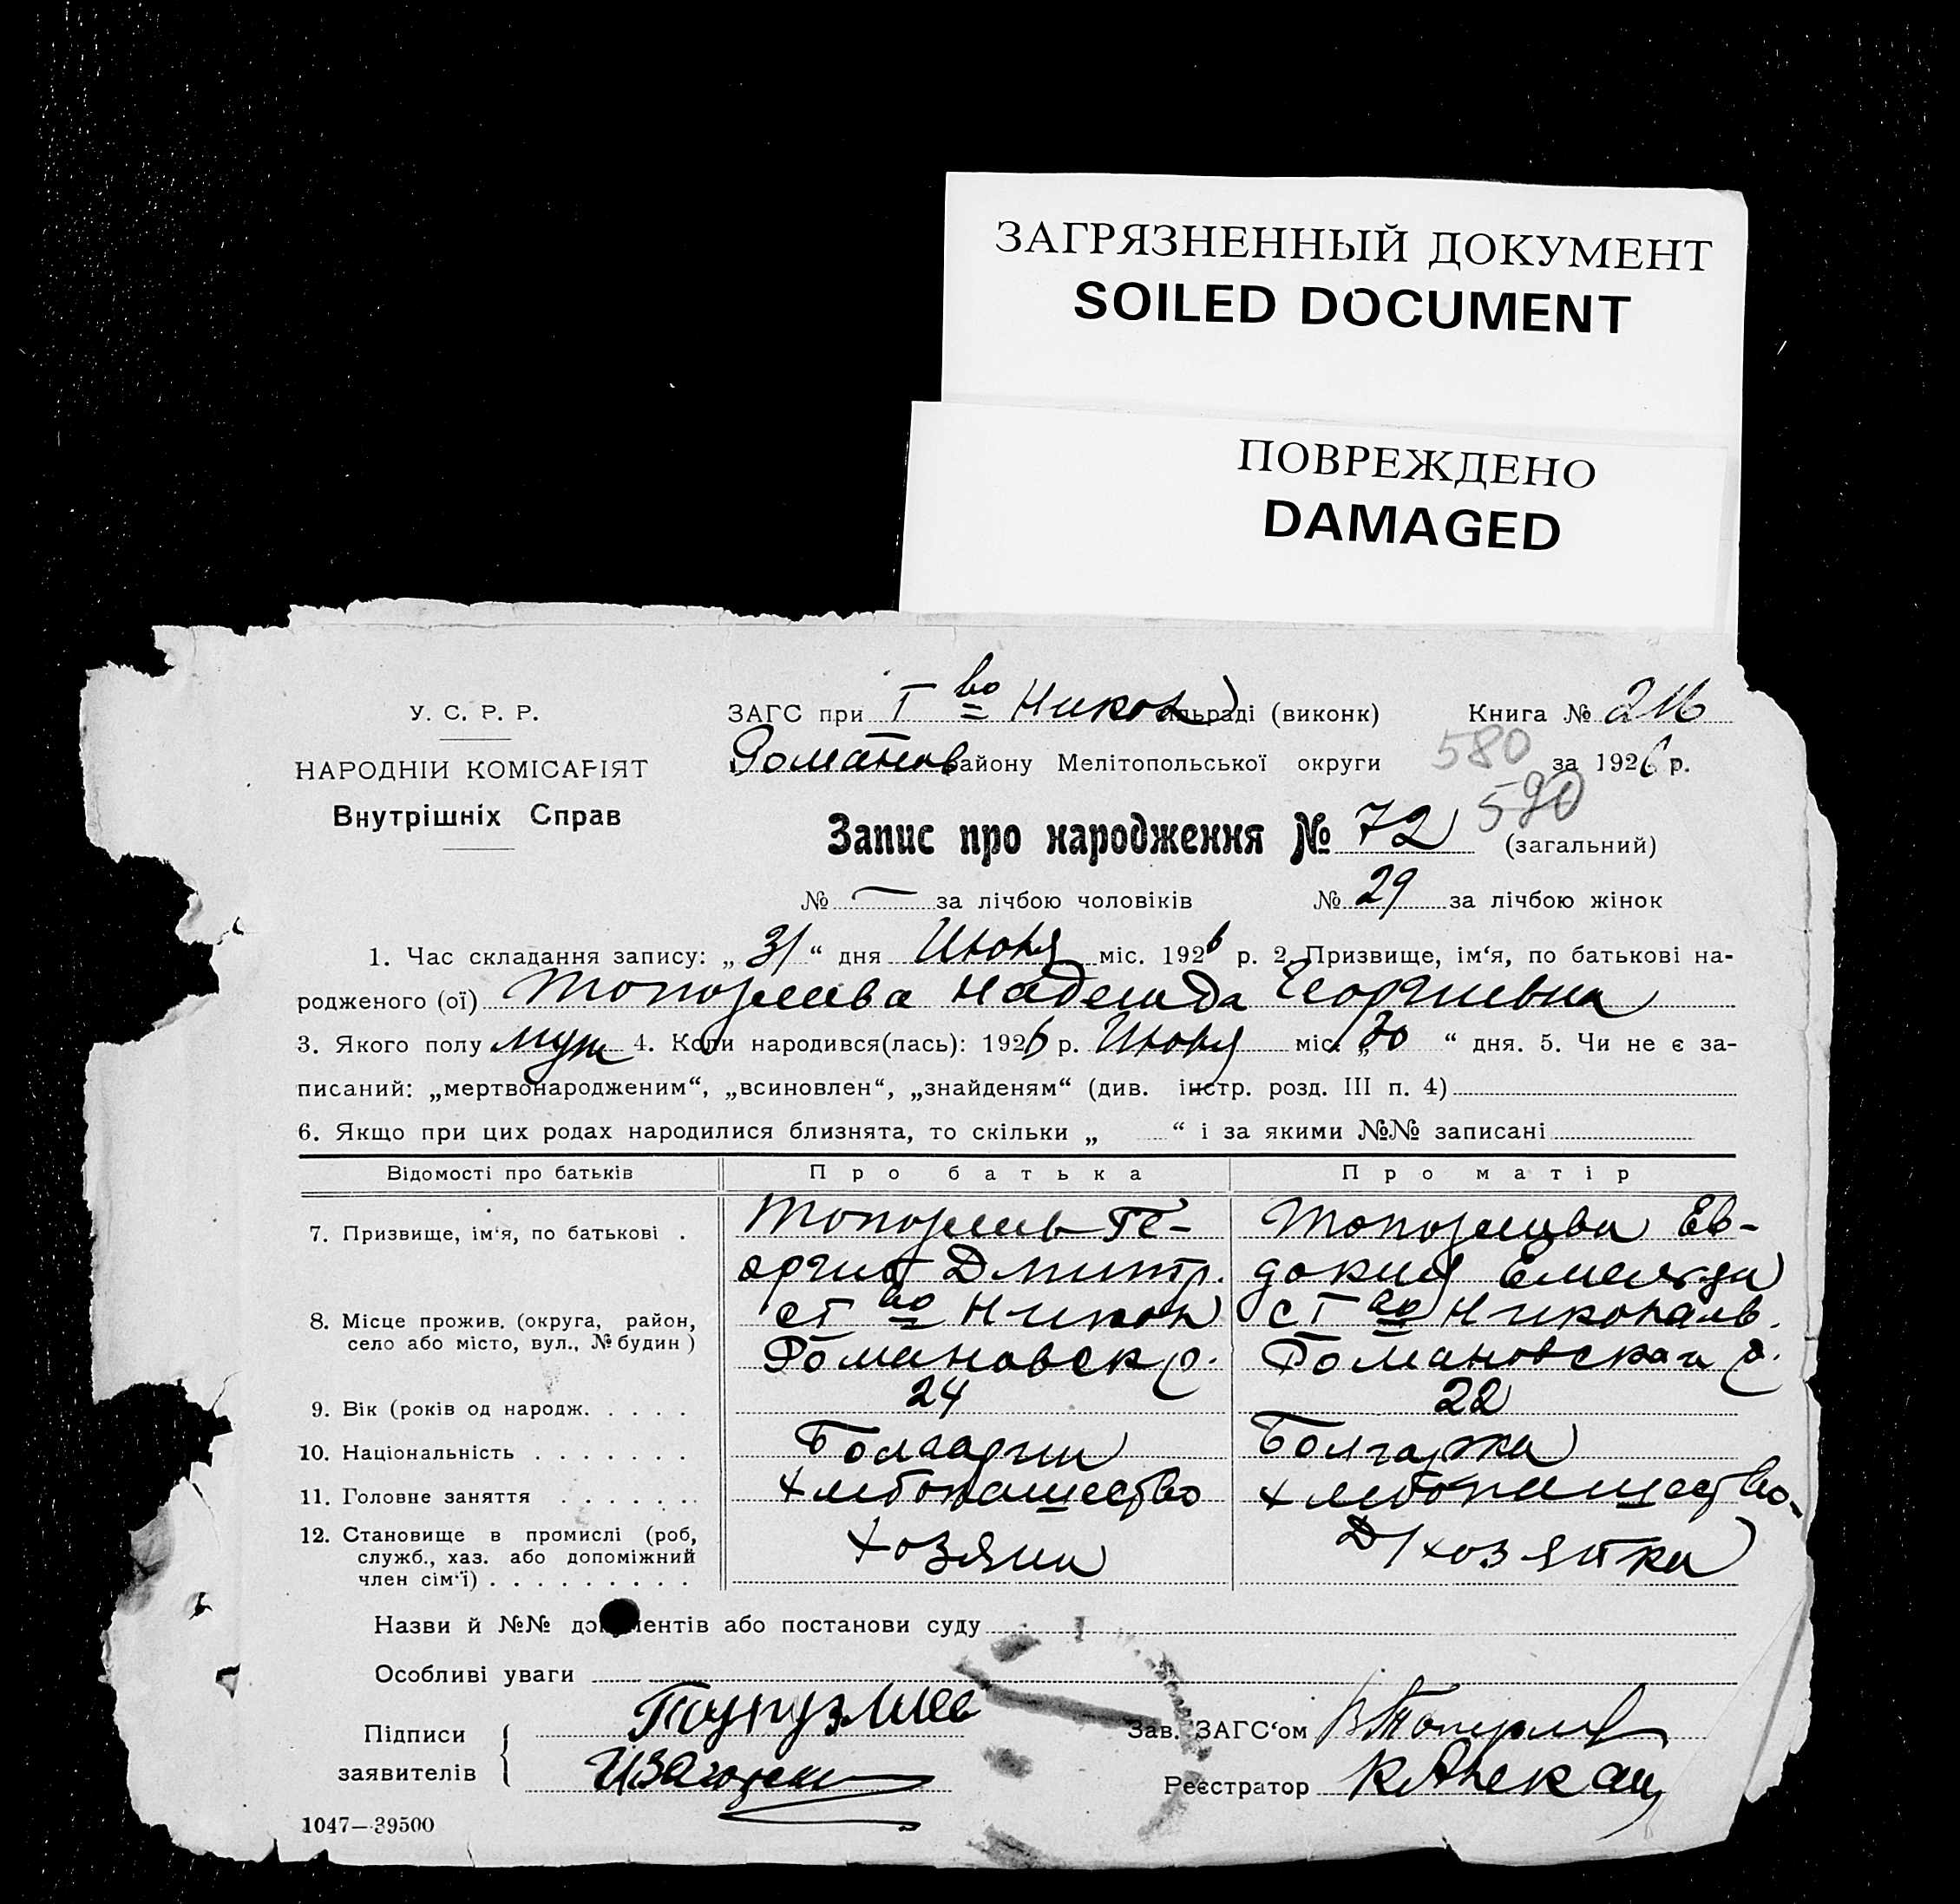 ЗАГРЯЗНЕННЫЙ ДОКУМЕНТ
SOILED DOCUMENT
ПОВРЕЖДЕНО
DAMAGED
У. С. Р. Р.
НАРОДНІЙ КОМІСАРІЯТ
Внутрішніх Справ
ЗАГС при I во Никол сільраді (виконк) Книга №
Романов району Мелітопольської округи 580 за 1926 р.
590
Запис про народження № 72 (загальний)
№ — за лічбою чоловіків № 29 за лічбою жінок
1. Час складання запису: „31“ дня Июля міс. 1926 р. 2. Призвище, ім‘я, по батькові на-
родженого (ої) Надежда Георгиевна
3. Якого полу муж 4. Коли народився(лась): 1926 р. Июля міс. „30“ дня. 5. Чи не є за-
писаний: „мертвонародженим“, „всиновлен“, „знайденям“ (див. інстр. розд. III п. 4)
6. Якщо при цих родах народилися близнята, то скільки „ “ і за якими №№ записані
Відомості про батьків Про батька Про матір
7. Призвище, ім‘я, по батькові . Ге- Ев-
оргий Дмитр. докия
8. Місце прожив. (округа, район, ст во Никол ст во
село або місто, вул., № будин ) Романовск р. Романовская р.
9. Вік (років од народж. . . . . 24 22
10. Національність . . . . . . . Болгарин Болгарка
11. Головне заняття . . . . . . хлебопашество хлебопашество
12. Становище в промислі (роб, хозяин Д/хозяйка
служб., хаз. або допоміжний
член сім‘ї) . . . . . . . . .
Назви й №№ документів або постанови суду
Особливі уваги
Підписи
заявителів
Зав. ЗАГС‘ом
Реєстратор
1047—39500